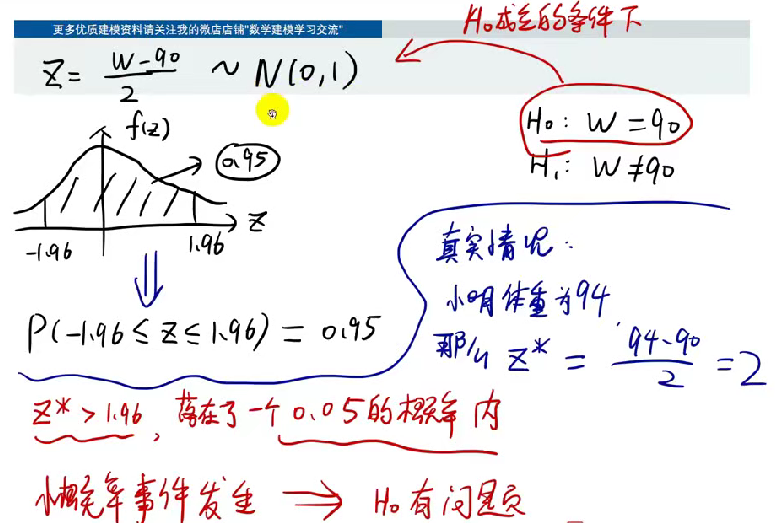 更多优质建模资料请关注我的微店店铺"数学建模学习交流"
H₀成立的条件下
Z = (W-90)/2 ~ N(0,1)
H₀: W = 90
H₁: W ≠ 90
f(z)
0.95
-1.96 1.96 Z
P(-1.96 ≤ Z ≤ 1.96) = 0.95
真实情况:
小明体重为94
那么 Z* = (94-90)/2 = 2
Z* > 1.96, 落在了一个0.05的概率内
小概率事件发生 → H₀有问题